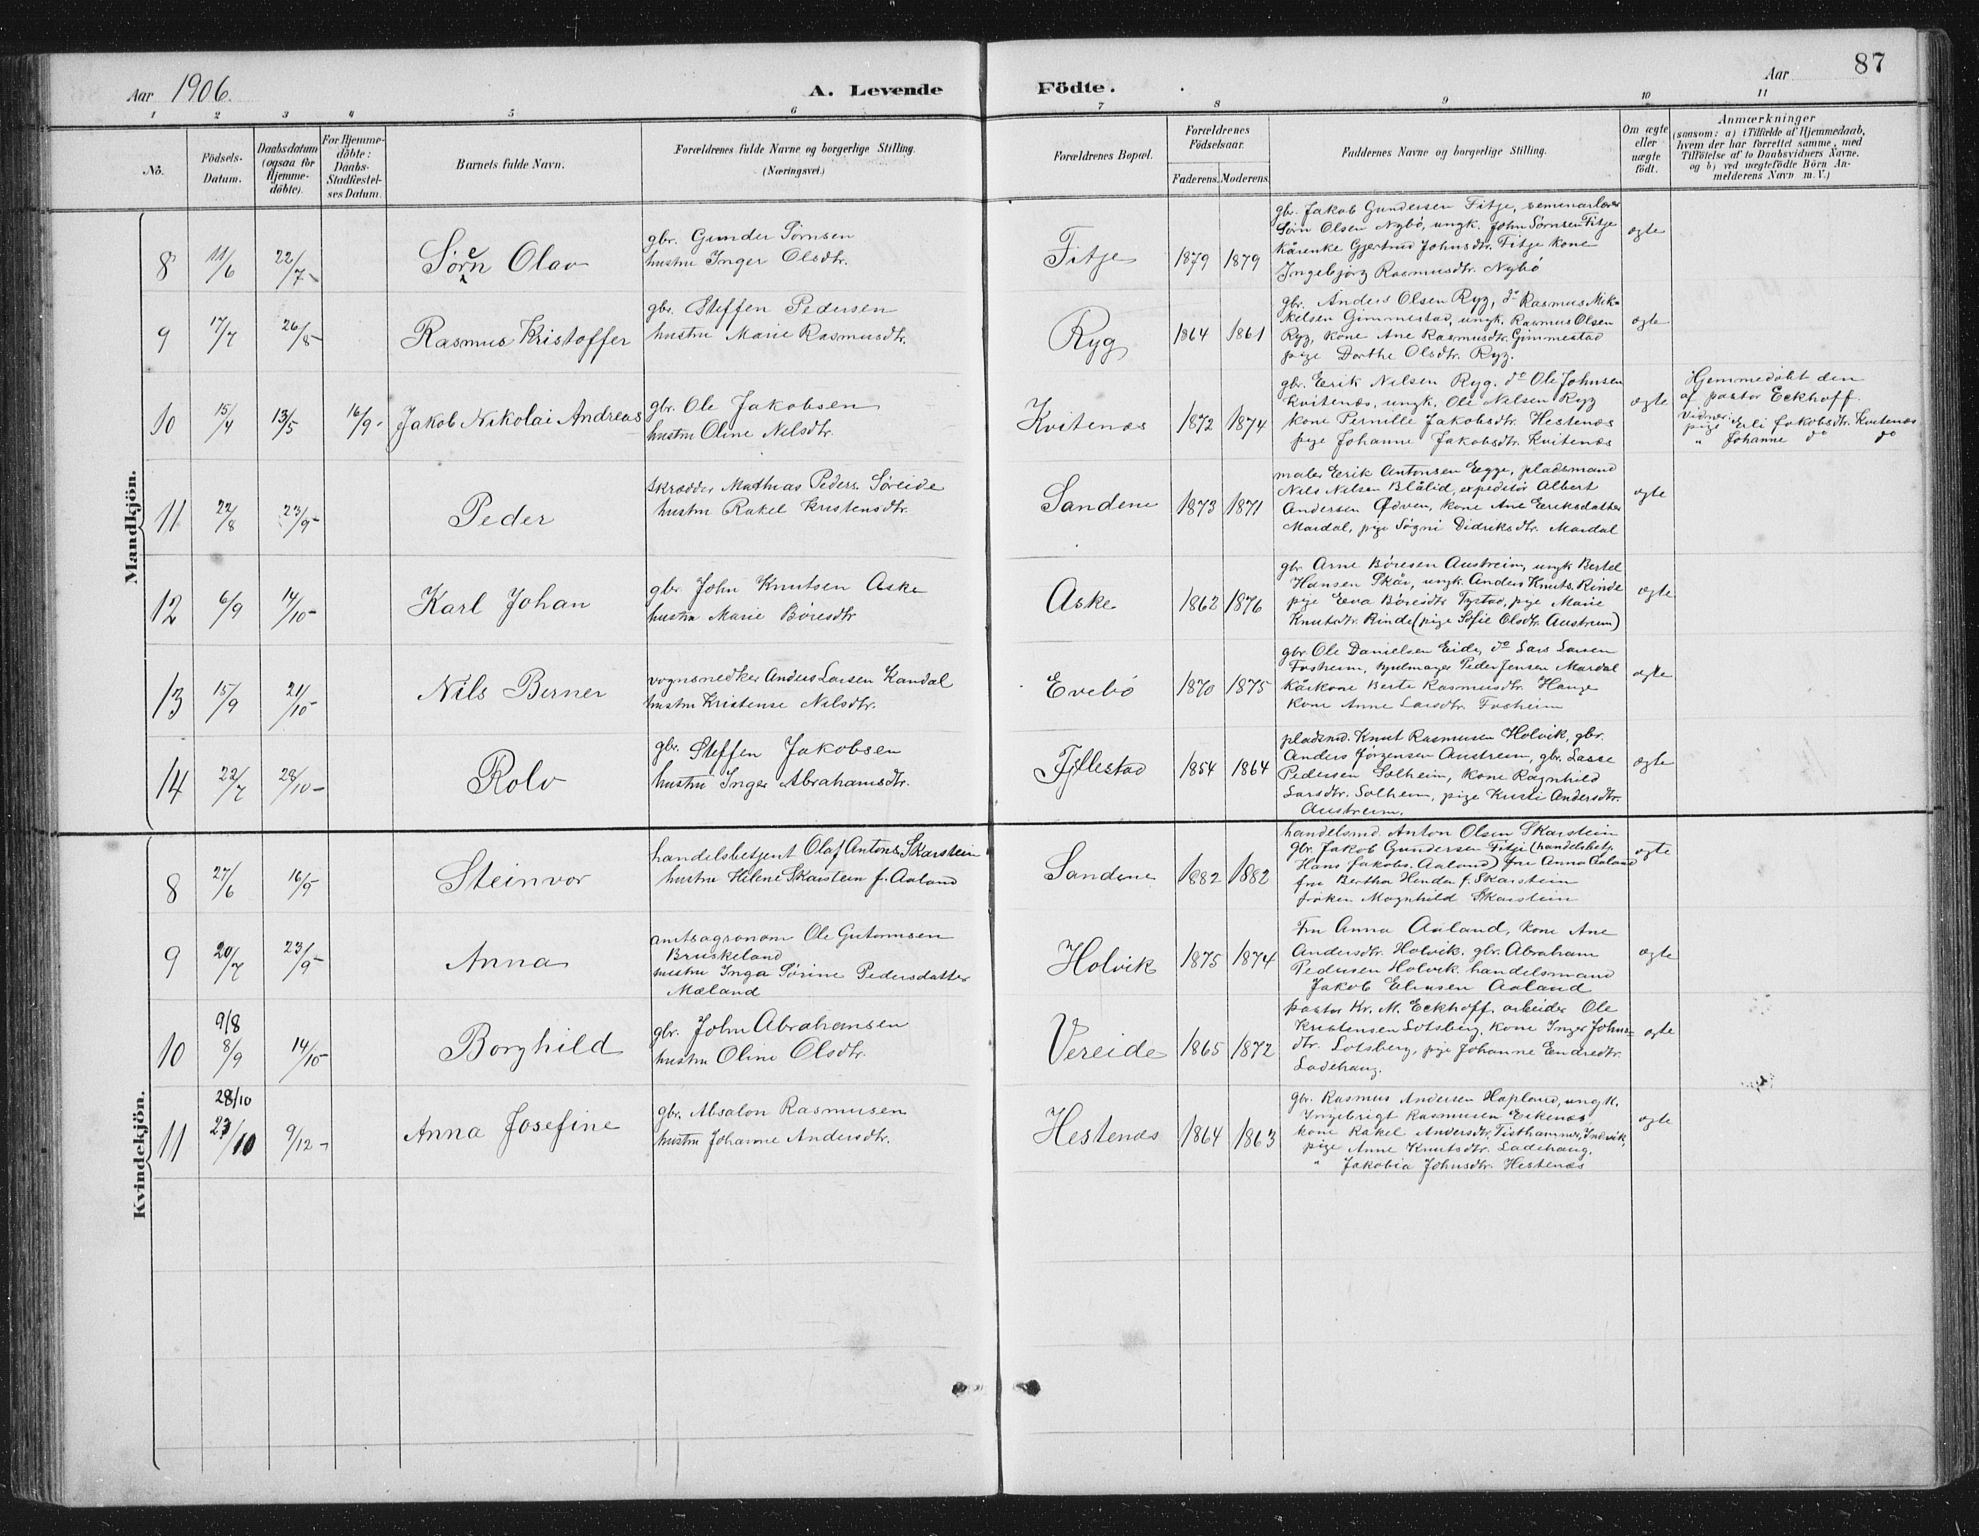 Aar 1906.
A. Levende
Födte.
Aar
87
1 2 3 4 5 6 7 8 9 10 11
No.
Födsels-
Datum.
Daabsdatum
(ogsaa for
Hjemme-
döbte).
For Hjemme-
döbte:
Daabs-
Stadfæstel-
ses Datum.
Barnets fulde Navn.
Forældrenes fulde Navne og borgerlige Stilling.
(Næringsvei.)
Forældrenes Bopæl.
Forældrenes
Födselsaar.
Faderens. Moderens.
Faddernes Navne og borgerlige Stilling.
Om ægte
eller
uægte
födt.
Anmærkninger
(saasom: a) i Tilfælde af Hjemmedaab,
hvem der har forrettet samme, med
Tilföielse af to Daabsvidners Navne,
og b) ved uægtefödte Börn An-
melderens Navn m. V.)
Mandkjön.
8 11/6 22/7- Søren Olav
gbr. Gunder Sørnsen
hustru Inger Olsdtr.
Fitje 1879 1879
gbr. Jakob Gundersen Fitje, seminarlærer
Sørn Olsen Nybø, ungk. John Sørnsen Fitje
kårenke Gjertrud Johnsdtr. Fitje kone
Ingebjørg Rasmusdtr. Nybø
ægte
9 17/7 26/8- Rasmus Kristoffer
gbr. Steffen Pedersen
hustru Marie Rasmusdtr.
Ryg 1864 1861
gbr. Anders Olsen Ryg, do Rasmus Mik-
kelsen Gimmestad, ungk. Rasmus Olsen
Ryg, kone Ane Rasmusdtr. Gimmestad
pige Dorthe Olsdtr. Ryg.
ægte
10 15/4 13/5 16/9- Jakob Nikolai Andreas
gbr. Ole Jakobsen
hustru Oline Nilsdtr.
Kvitenæs 1872 1874
gbr. Erik Nilsen Ryg. do Ole Johnsen
Kvitenæs, ungk. Ole Nilsen Ryg
kone Pernille Jakobsdtr. Hestenæs
pige Johanne Jakobsdtr. Kvitenæs
ægte
Hjemmedøbt den
af pastor Eckhoff.
Vidner:
pige Erli Jakobsdtr. Kvitenæs
" Johanne do do
11 22/8 23/9- Peder
skrædder Mathias Peders. Søreide
hustru Rakel Kristensdtr.
Sandene 1873 1871
maler Erik Antonsen Egge, pladsmand
Nils Nilsen Blålid, expeditør Albert
Andersen Ødven, kone Ane Eriksdatter
Mardal, pige Søgni Didriksdtr. Mardal
ægte
12 6/9 14/10- Karl Johan
gbr. John Knutsen Aske
hustru Marie Børesdtr
Aske 1862 1876
gbr Arne Børesen Austreim, ungk Bertel
Hansen Skår, ungk. Anders Knuts. Rinde
pige Eva Børesdtr Tystad, pige Marie
Knutsdtr. Rinde (pige Sofie Olsdtr. Austreim)
ægte
13 15/9 21/10- Nils Berner
vognsnedker Anders Larsen Kandal
hustru Kristense Nilsdtr.
Evebø 1870 1875
gbr Ole Danielsen Eide, do Lars Larsen
Fosheim, hjulmager Peder Jensen Mardal
kårkone Berte Rasmusdtr. Hauge
kone Anne Larsdtr. Fosheim
ægte
14 22/7 28/10- Rolv
gbr. Steffen Jakobsen
hustru Inger Abrahamsdtr.
Fjellestad 1854 1864
pladsmd. Knut Rasmusen Holvik, gbr.
Anders Jørgensen Austreim, gbr. Lasse
Pedersen Solheim, kone Ragnhild
Larsdtr. Solheim, pige Kristi Andersdtr.
Austreim.
ægte
Kvindekjön.
8 27/6 16/9 Steinvor
handelsbetjent Olaf Antons. Skarstein
hustru Helene Skarstein f. Aaland
Sandene 1882 1882
handelsmd. Anton Olsen Skarstein
gbr. Jakob Gundersen Fitje (handelsbetj.
Hans Jakobs. Aaland) fru Anna Aaland
fru Bertha Henden f. Skarstein
frøken Magnhild Skarstein
ægte
9 20/7 23/9- Anna
amtsagronom Ole Gutormsen
Bruskeland
hustru Inga Sørine Pedersdatter
Mæland
Holvik 1875 1874
Fru Anna Aaland, kone Ane
Andersdtr. Holvik. gbr. Abraham
Pedersen Holvik. handelsmand
Jakob Eliasen Aaland
ægte
9/8
10 8/9 14/10- Borghild
gbr. John Abrahamsen
hustru Oline Olsdtr.
Vereide 1865 1872
pastor Kr. M. Eckhoff. arbeider Ole
Kristensen Lotsberg, kone Inger Johns-
dtr. Lotsberg, pige Johanne Endredtr.
Ladehaug.
ægte
28/10
11 23/10 9/12- Anna Josefine
gbr. Absalon Rasmusen
hustru Johanne Andersdtr.
Hestenæs 1864 1863
gbr. Rasmus Andersen Hapland, ungk.
Ingebrigt Rasmusen Eikenæs,
kone Rakel Andersdtr. Tisthammer, Indvik,
pige Anne Knutsdtr. Ladehaug.
" Jakobia Johnsdtr. Hestenæs
ægte